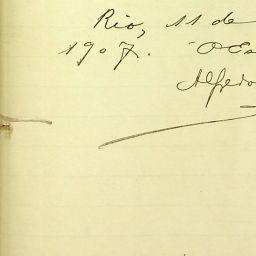 Rio, 11 de
1907. O Es
Alfredo